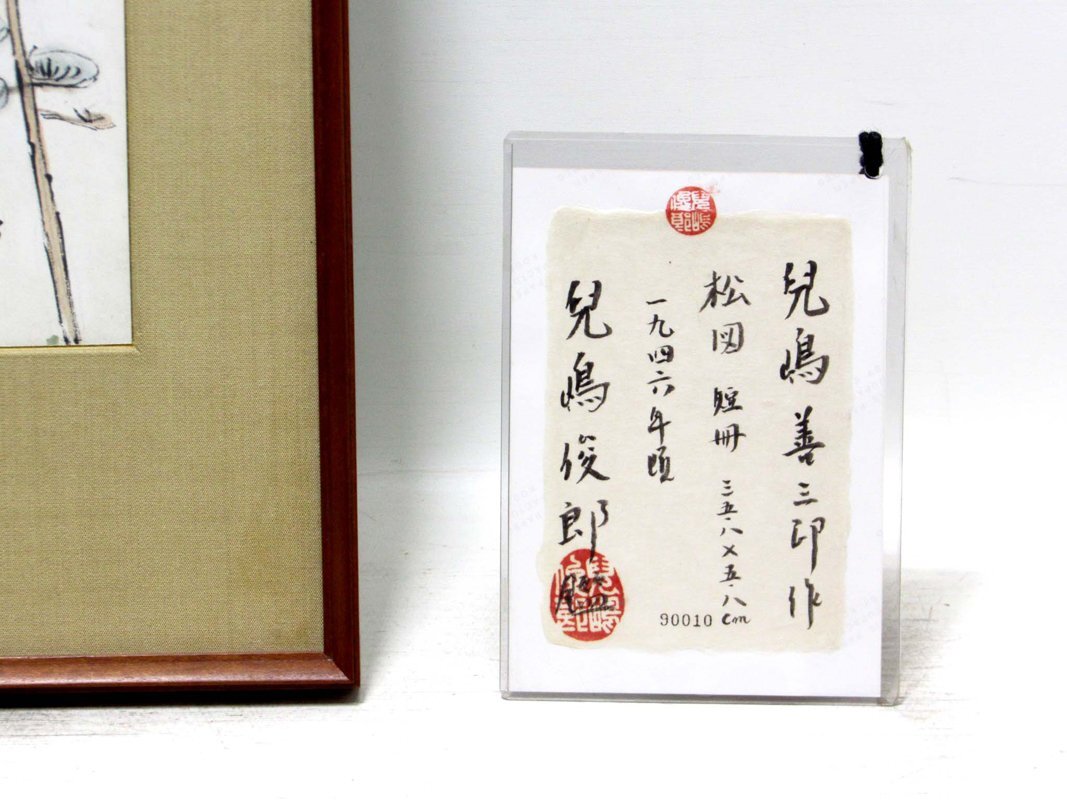 兒嶋善三郎作
松図 短冊 三五·八×五·八cm
一九四六年頃
兒嶋俊郎鑑
90010